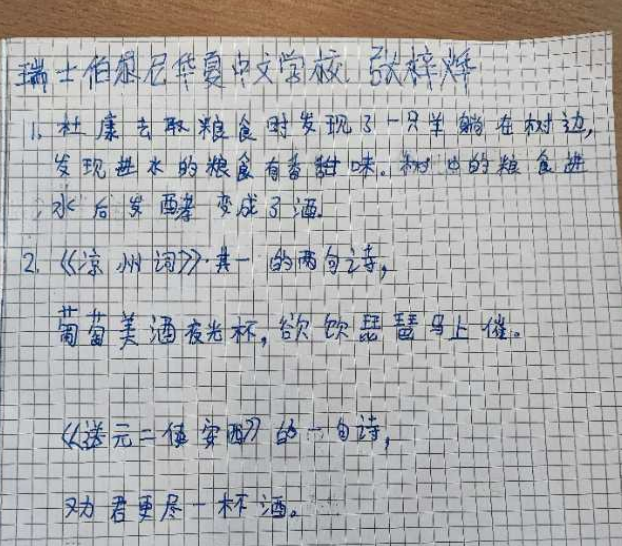 瑞士伯尔尼华夏中文学校 张梓烨
1. 杜康去取粮食时发现了一只羊躺在树边,
发现进水的粮食有香甜味。树中的粮食进
水后发酵变成了酒.
2.《凉州词》·其一的两句诗,
葡萄美酒夜光杯,欲饮琵琶马上催。
《送元二使安西》的一句诗,
劝君更尽一杯酒。